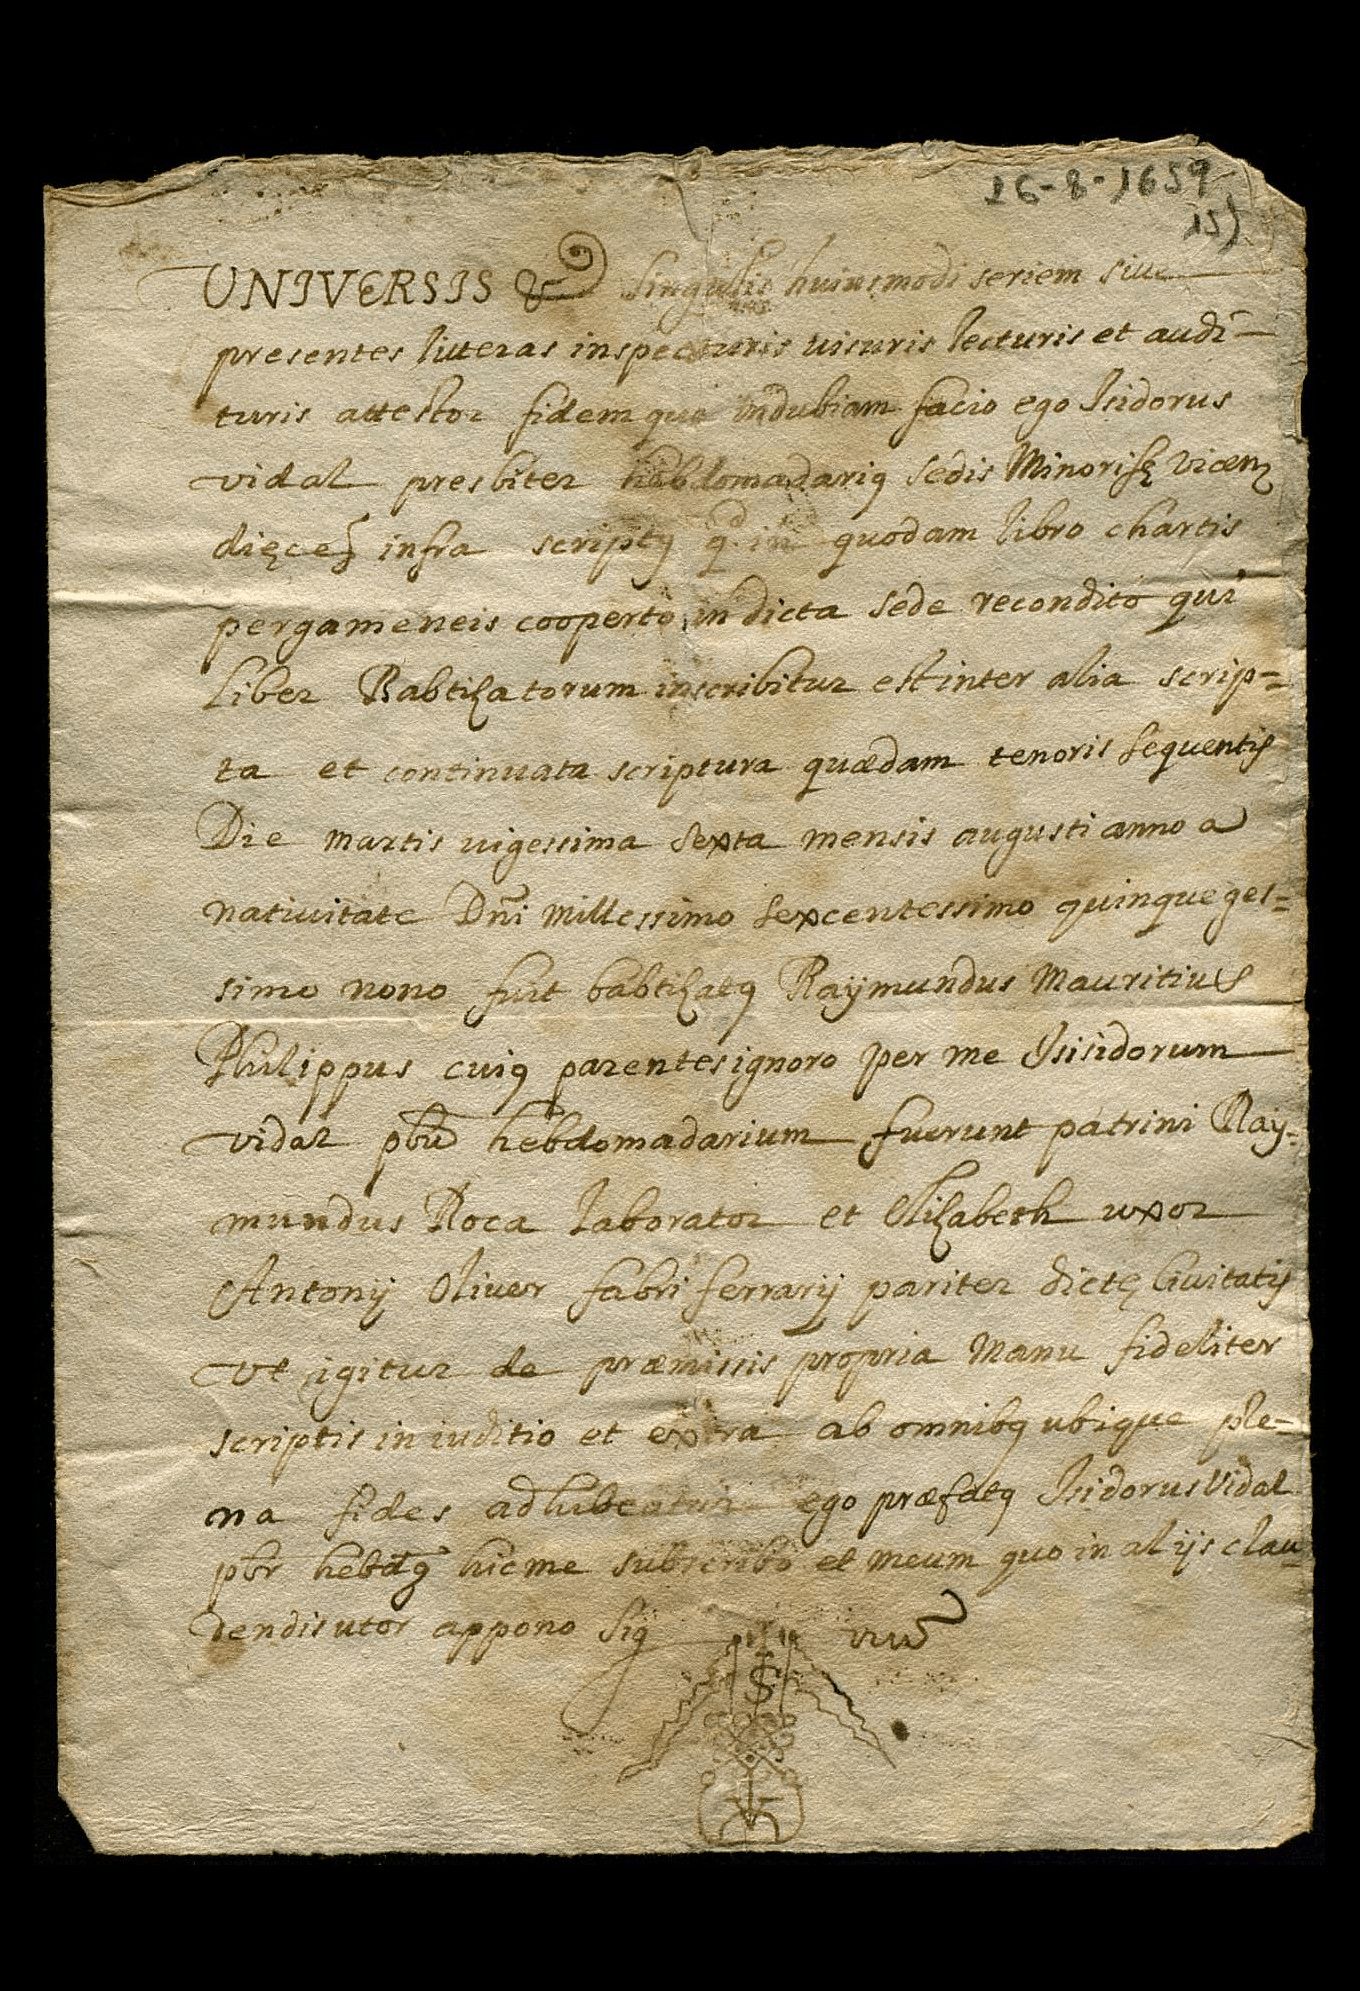 16-8-1659
15)
UNIVERSIS & singulis huiusmodi seriem siue
presentes litteras inspecturis uisuris lecturis et audi-
turis attestor fidem que indubiam facio ego Isidorus
vidal presbiter hebdomadariꝯ sedis Minorisę Vicen
dięces infra scriptꝯ qd in quodam libro chartis
pergameneis cooperto in dicta sede recondito qui
Liber Babtiẓatorum inscribitur est inter alia scrip=
ta et continuata scriptura quædam tenoris sequentis
Die martis uigessima sexta mensis augusti anno a
natiuitate Dñi millessimo sexcentessimo quinqueges=
simo nono fuit babtizatꝯ Raÿmundus Mauritius
Philippus cuiꝯ parentes ignoro per me Isisidorum
vidal pbrũ hebdomadarium fuerunt patrini Raÿ=
mundus Roca laborator et Elizabeth uxor
Antonij Oliuer fabri ferrarij pariter dictę Ciuitatis
Vt igitur de præmissis propria manu fideliter
scriptis in iuditio et extra ab omnibꝯ ubique ple-
na fides adhibeatur ego præfatꝯ Isidorus Vidal
pbr hebdꝯ hic me subscribo et meum quo in alijs clau
dendis utor appono Sig num
S